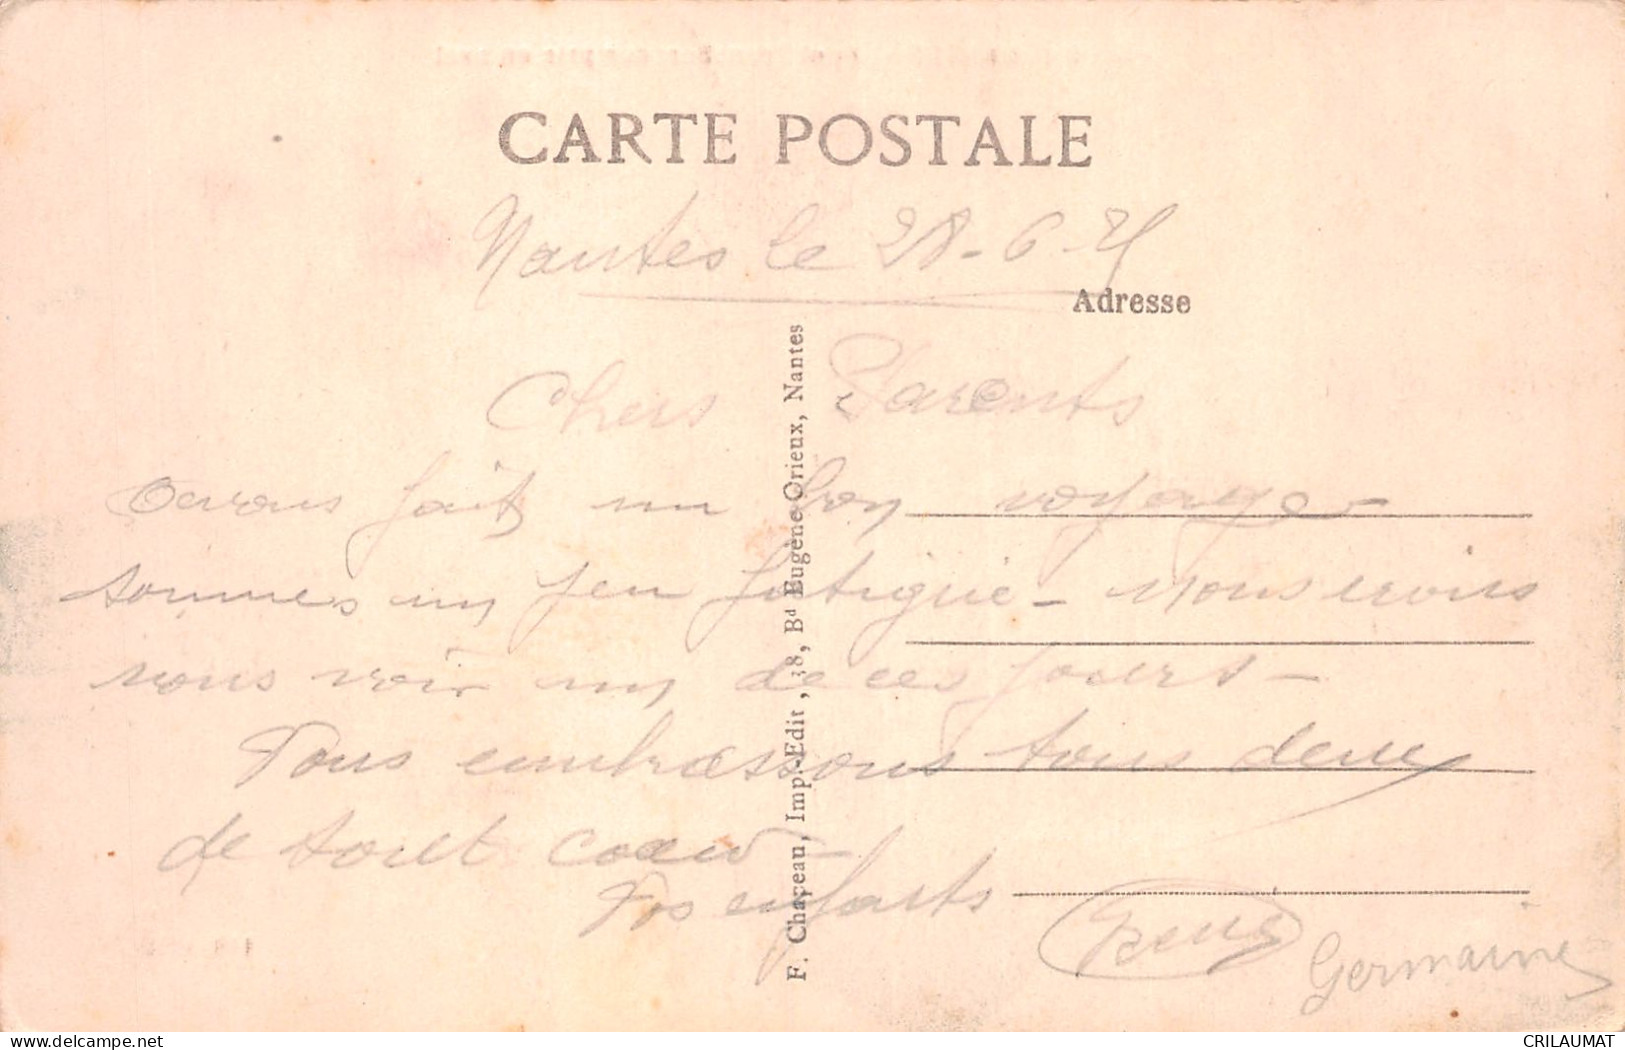 CARTE POSTALE
Nantes le 28-6-
Adresse
Chers Parents
avons fait un bon voyage
sommes un peu fatigué - nous irons
vous voir un de ces jours -
Vous embrassons tous deux
de tout coeur -
Vos enfants
René
Germaine
F. Chapeau, Imp.-Edit, 38, Bd Eugène Orieux, Nantes
delcampe.net
CRILAUMAT